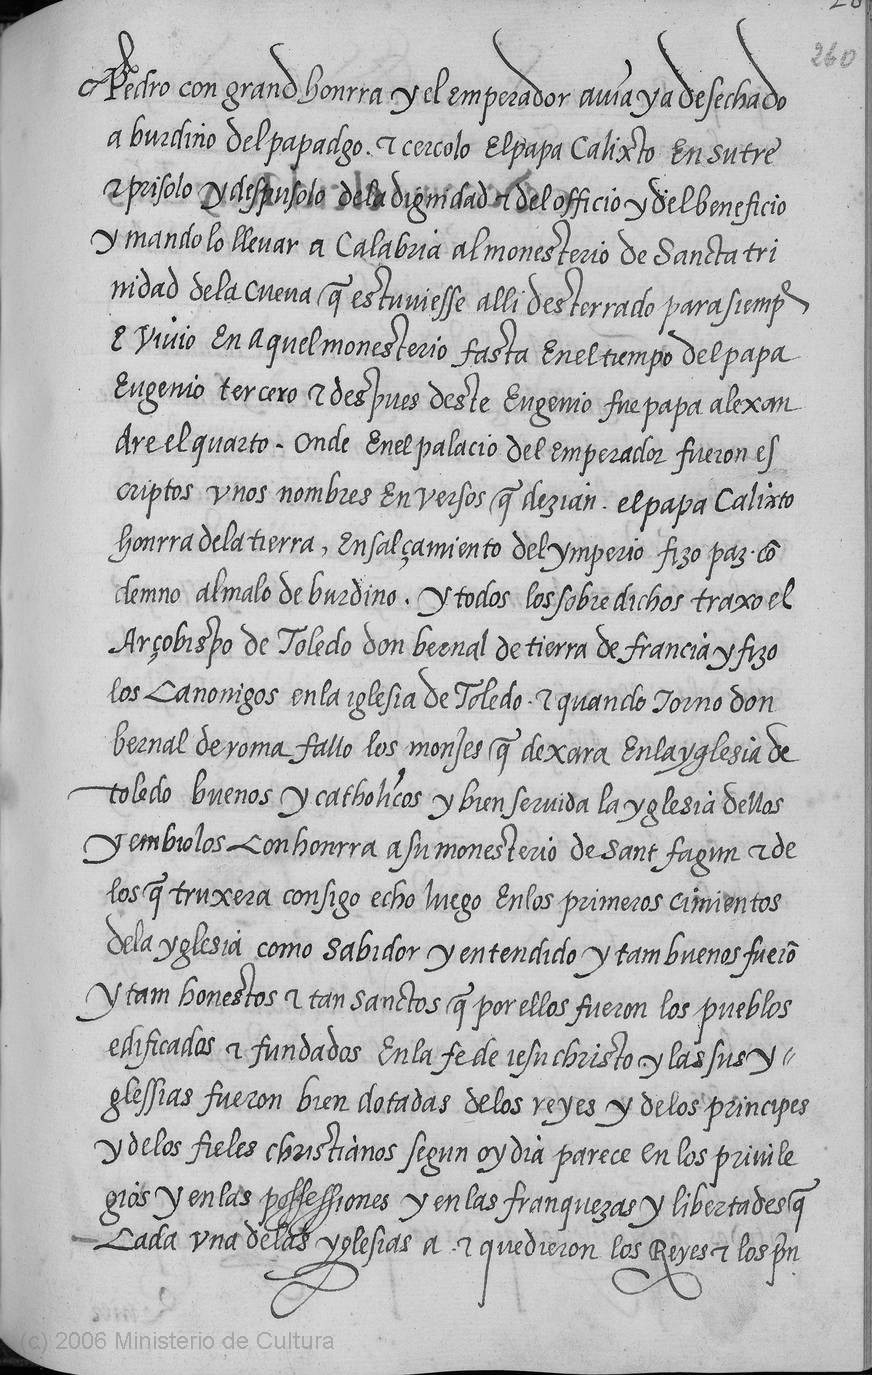 260
Pedro con grand honrra y el emperador auia ya desechado
a burdino del papadgo. τ cercolo El papa Calixto En sutre
τ prisolo y despusolo dela dignidad τ del officio y del beneficio
y mandolo lleuar a Calabria al monesterio de Sancta tri
nidad dela Cueua q̃ estuuiesse alli desterrado para siemp̃
E viuio En aquel monesterio fasta Enel tiempo del papa
Eugenio tercero τ despues deste Eugenio fue papa alexan
dre el quarto - Onde Enel palacio del Emperador fueron es
criptos vnos nombres En versos q̃ dezian. el papa Calixto
honrra dela tierra, Ensalçamiento del ymperio fizo paz. cõ
demno al malo de burdino. y todos los sobre dichos traxo el
Arçobispo de Toledo don bernal de tierra de francia y fizo
los Canonigos en la iglesia de Toledo. τ quando Torno don
bernal de roma fallo los monjes q̃ dexara Enla yglesia de
toledo buenos y catholicos y bien seruida la yglesia dellos
y embiolos Con honrra a su monesterio de Sant fagun τ de
los q̃ truxera consigo echo luego Enlos primeros cimientos
dela yglesia como Sabidor y entendido y tam buenos fuerõ
y tam honestos τ tan Sanctos q̃ por ellos fueron los pueblos
edificados τ fundados Enla fe de iesu christo y las sus y//
glessias fueron bien dotadas delos reyes y delos principes
y delos fieles christianos segun oy dia parece En los priuile
gios y en las possessiones y en las franquezas y libertades q̃
Cada vna delas yglesias a. τ que dieron los Reyes τ los p̃n
(c) 2006 Ministerio de Cultura